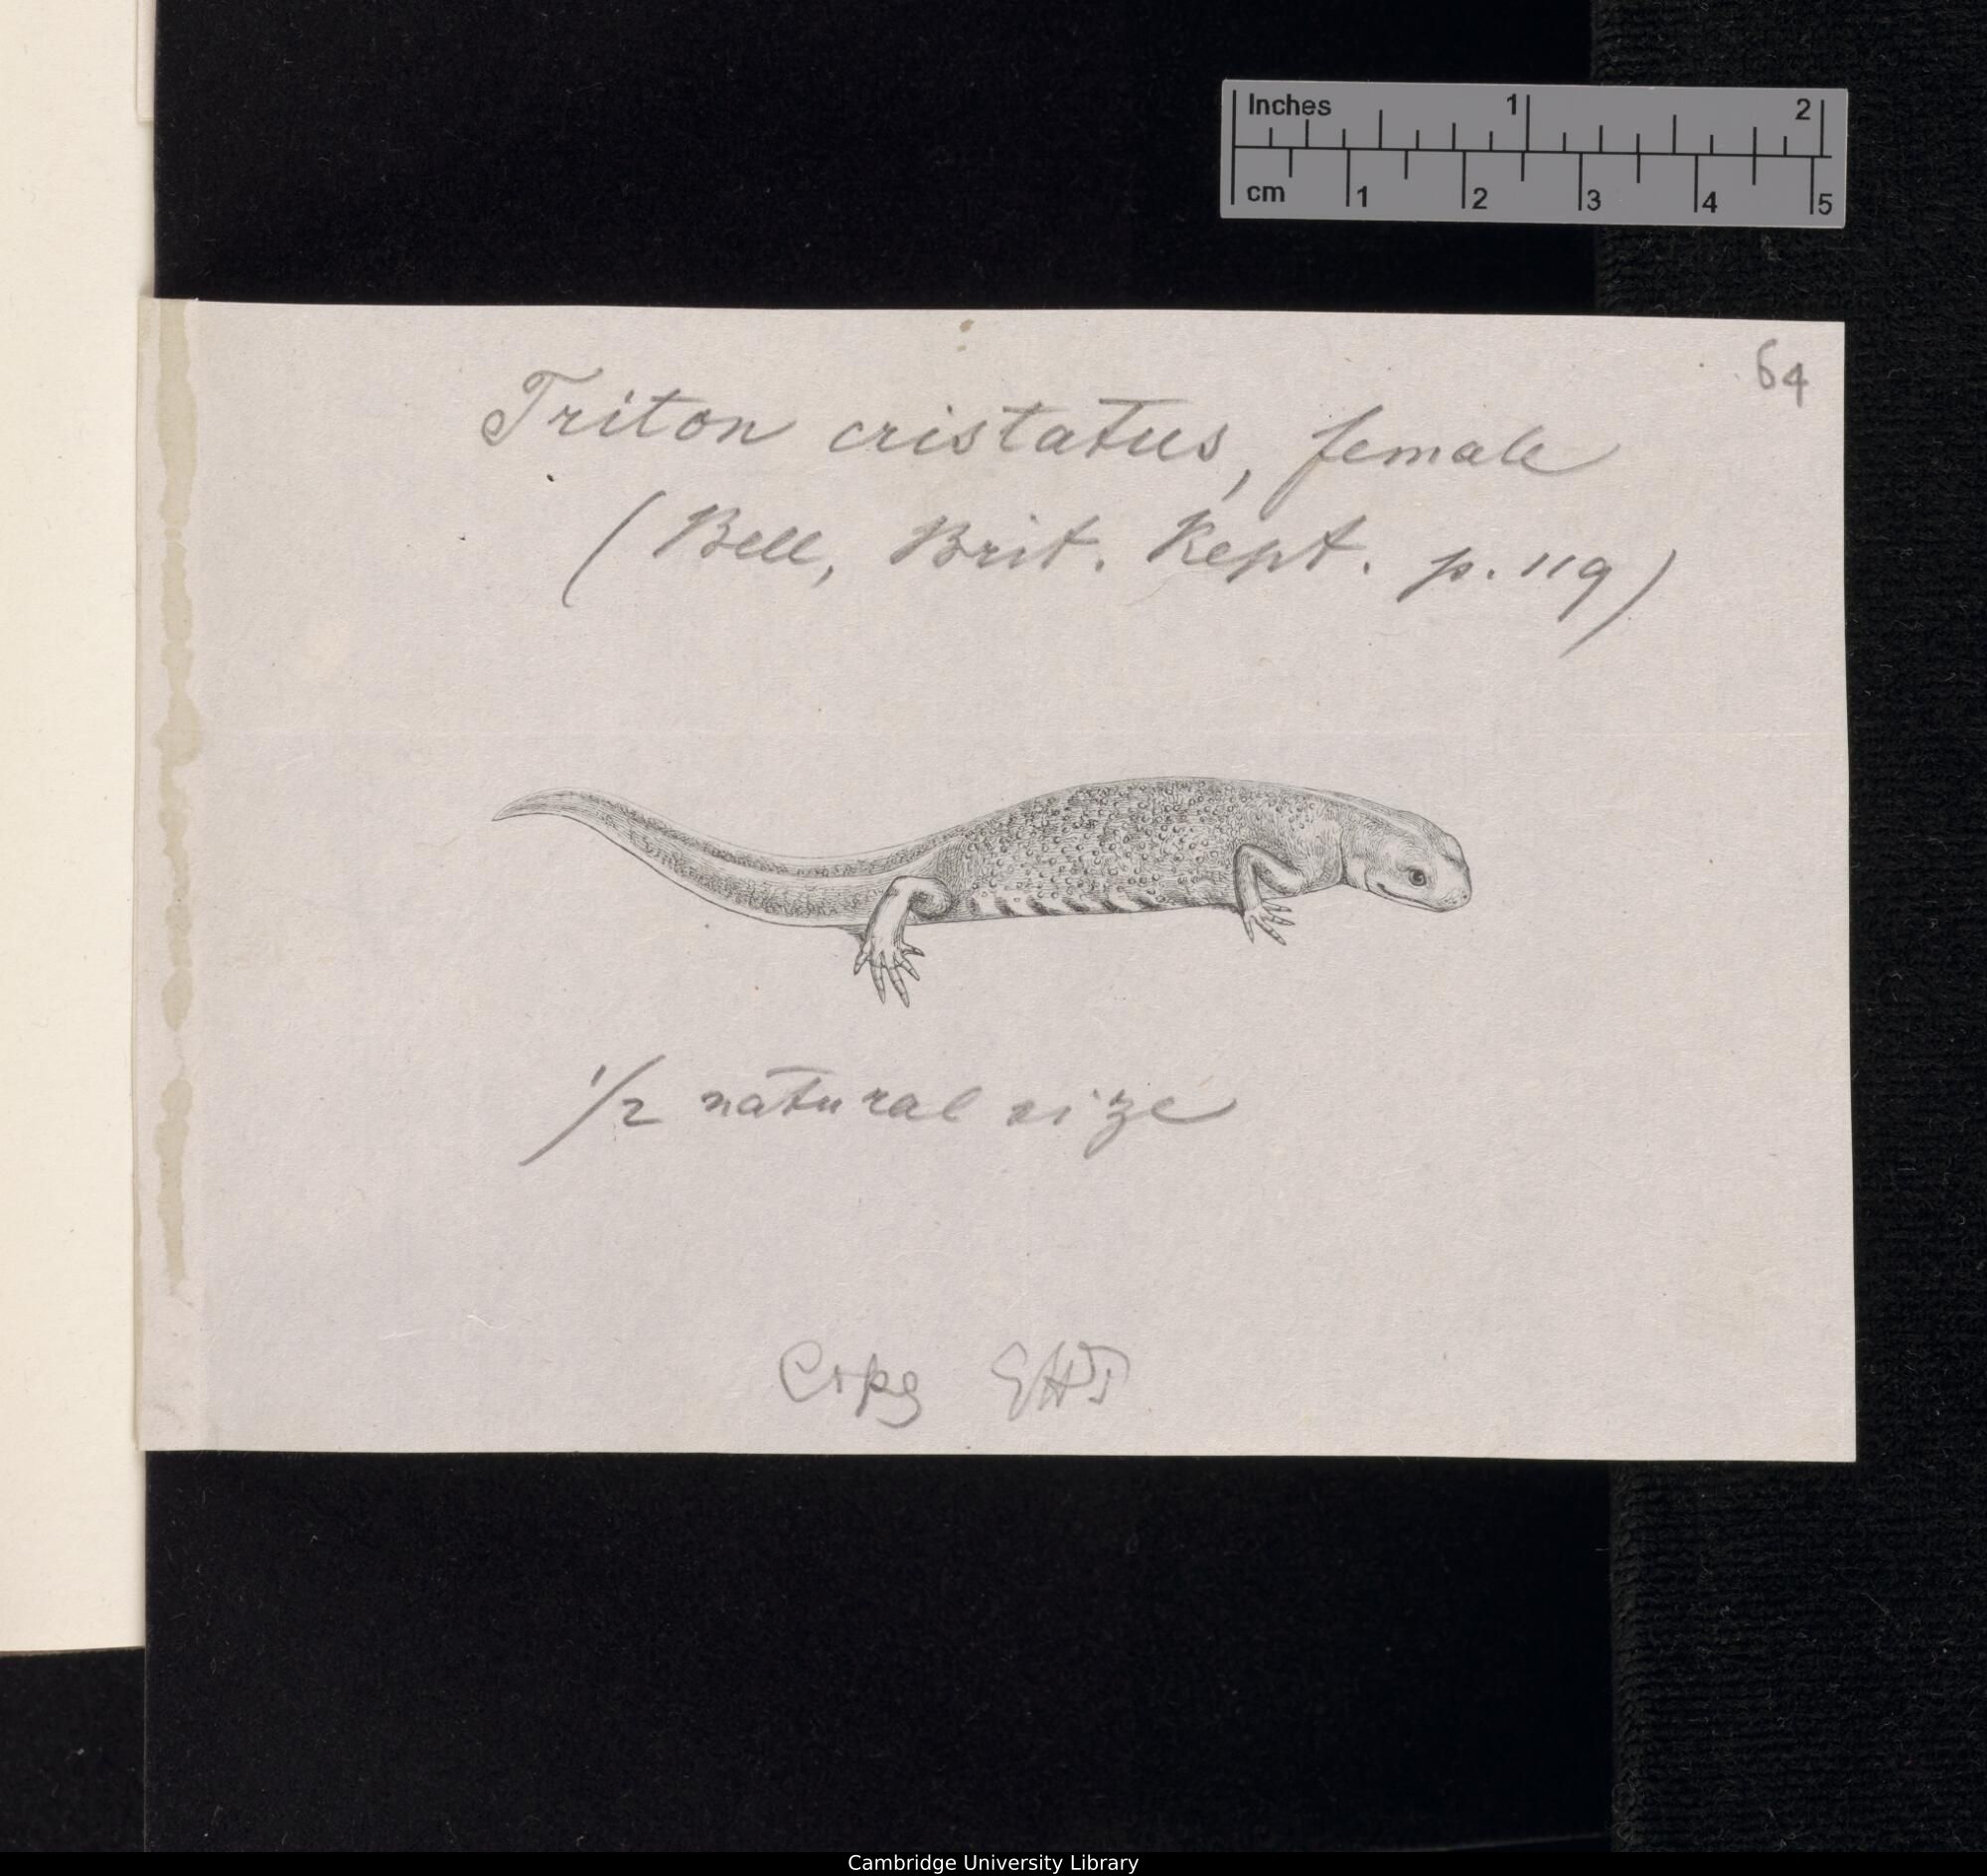 Inches 1 2
cm 1 2 3 4 5
64
Triton cristatus, female
(Bell, Brit. Rept. p. 119)
1/2 natural size
Copy
Cambridge University Library